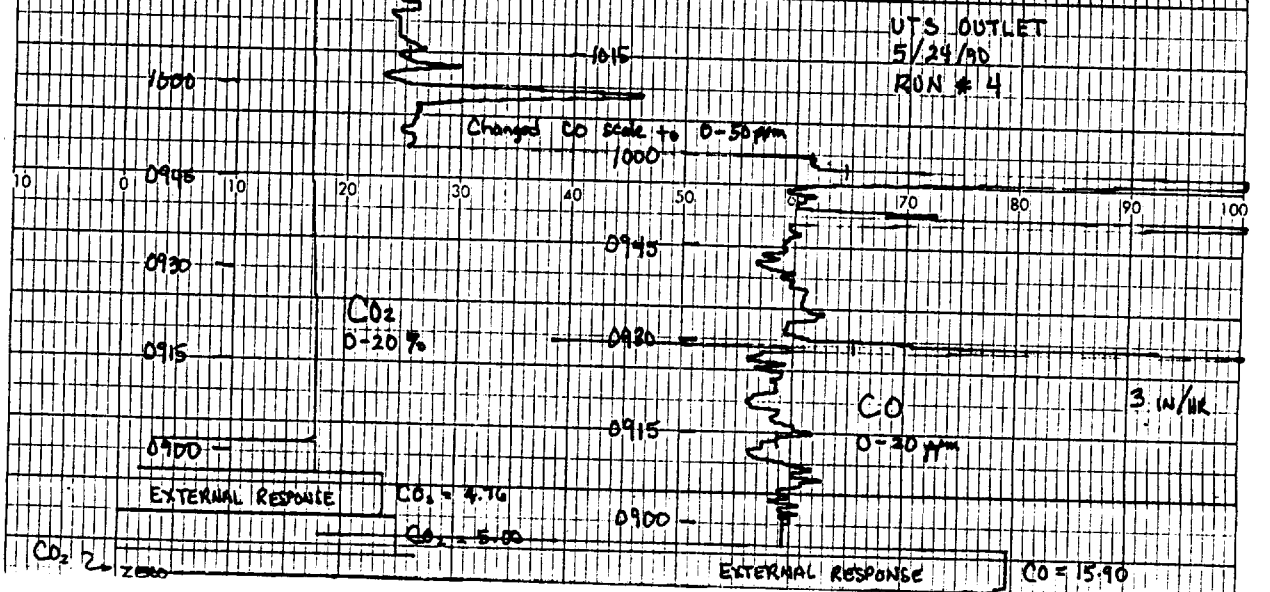 UTS OUTLET
5/24/90
RUN # 4
1015
1000
Changed CO scale to 0-50 ppm
1000
0945
10 0 10 20 30 40 50 60 70 80 90 100
0945
0930
CO2
0-20 %
0930
0915
3 IN/HR
CO
0-20 ppm
0915
0900
EXTERNAL RESPONSE
CO2 = 4.76
0900
CO2 = 5.00
CO2
ZERO
EXTERNAL RESPONSE
CO = 15.90